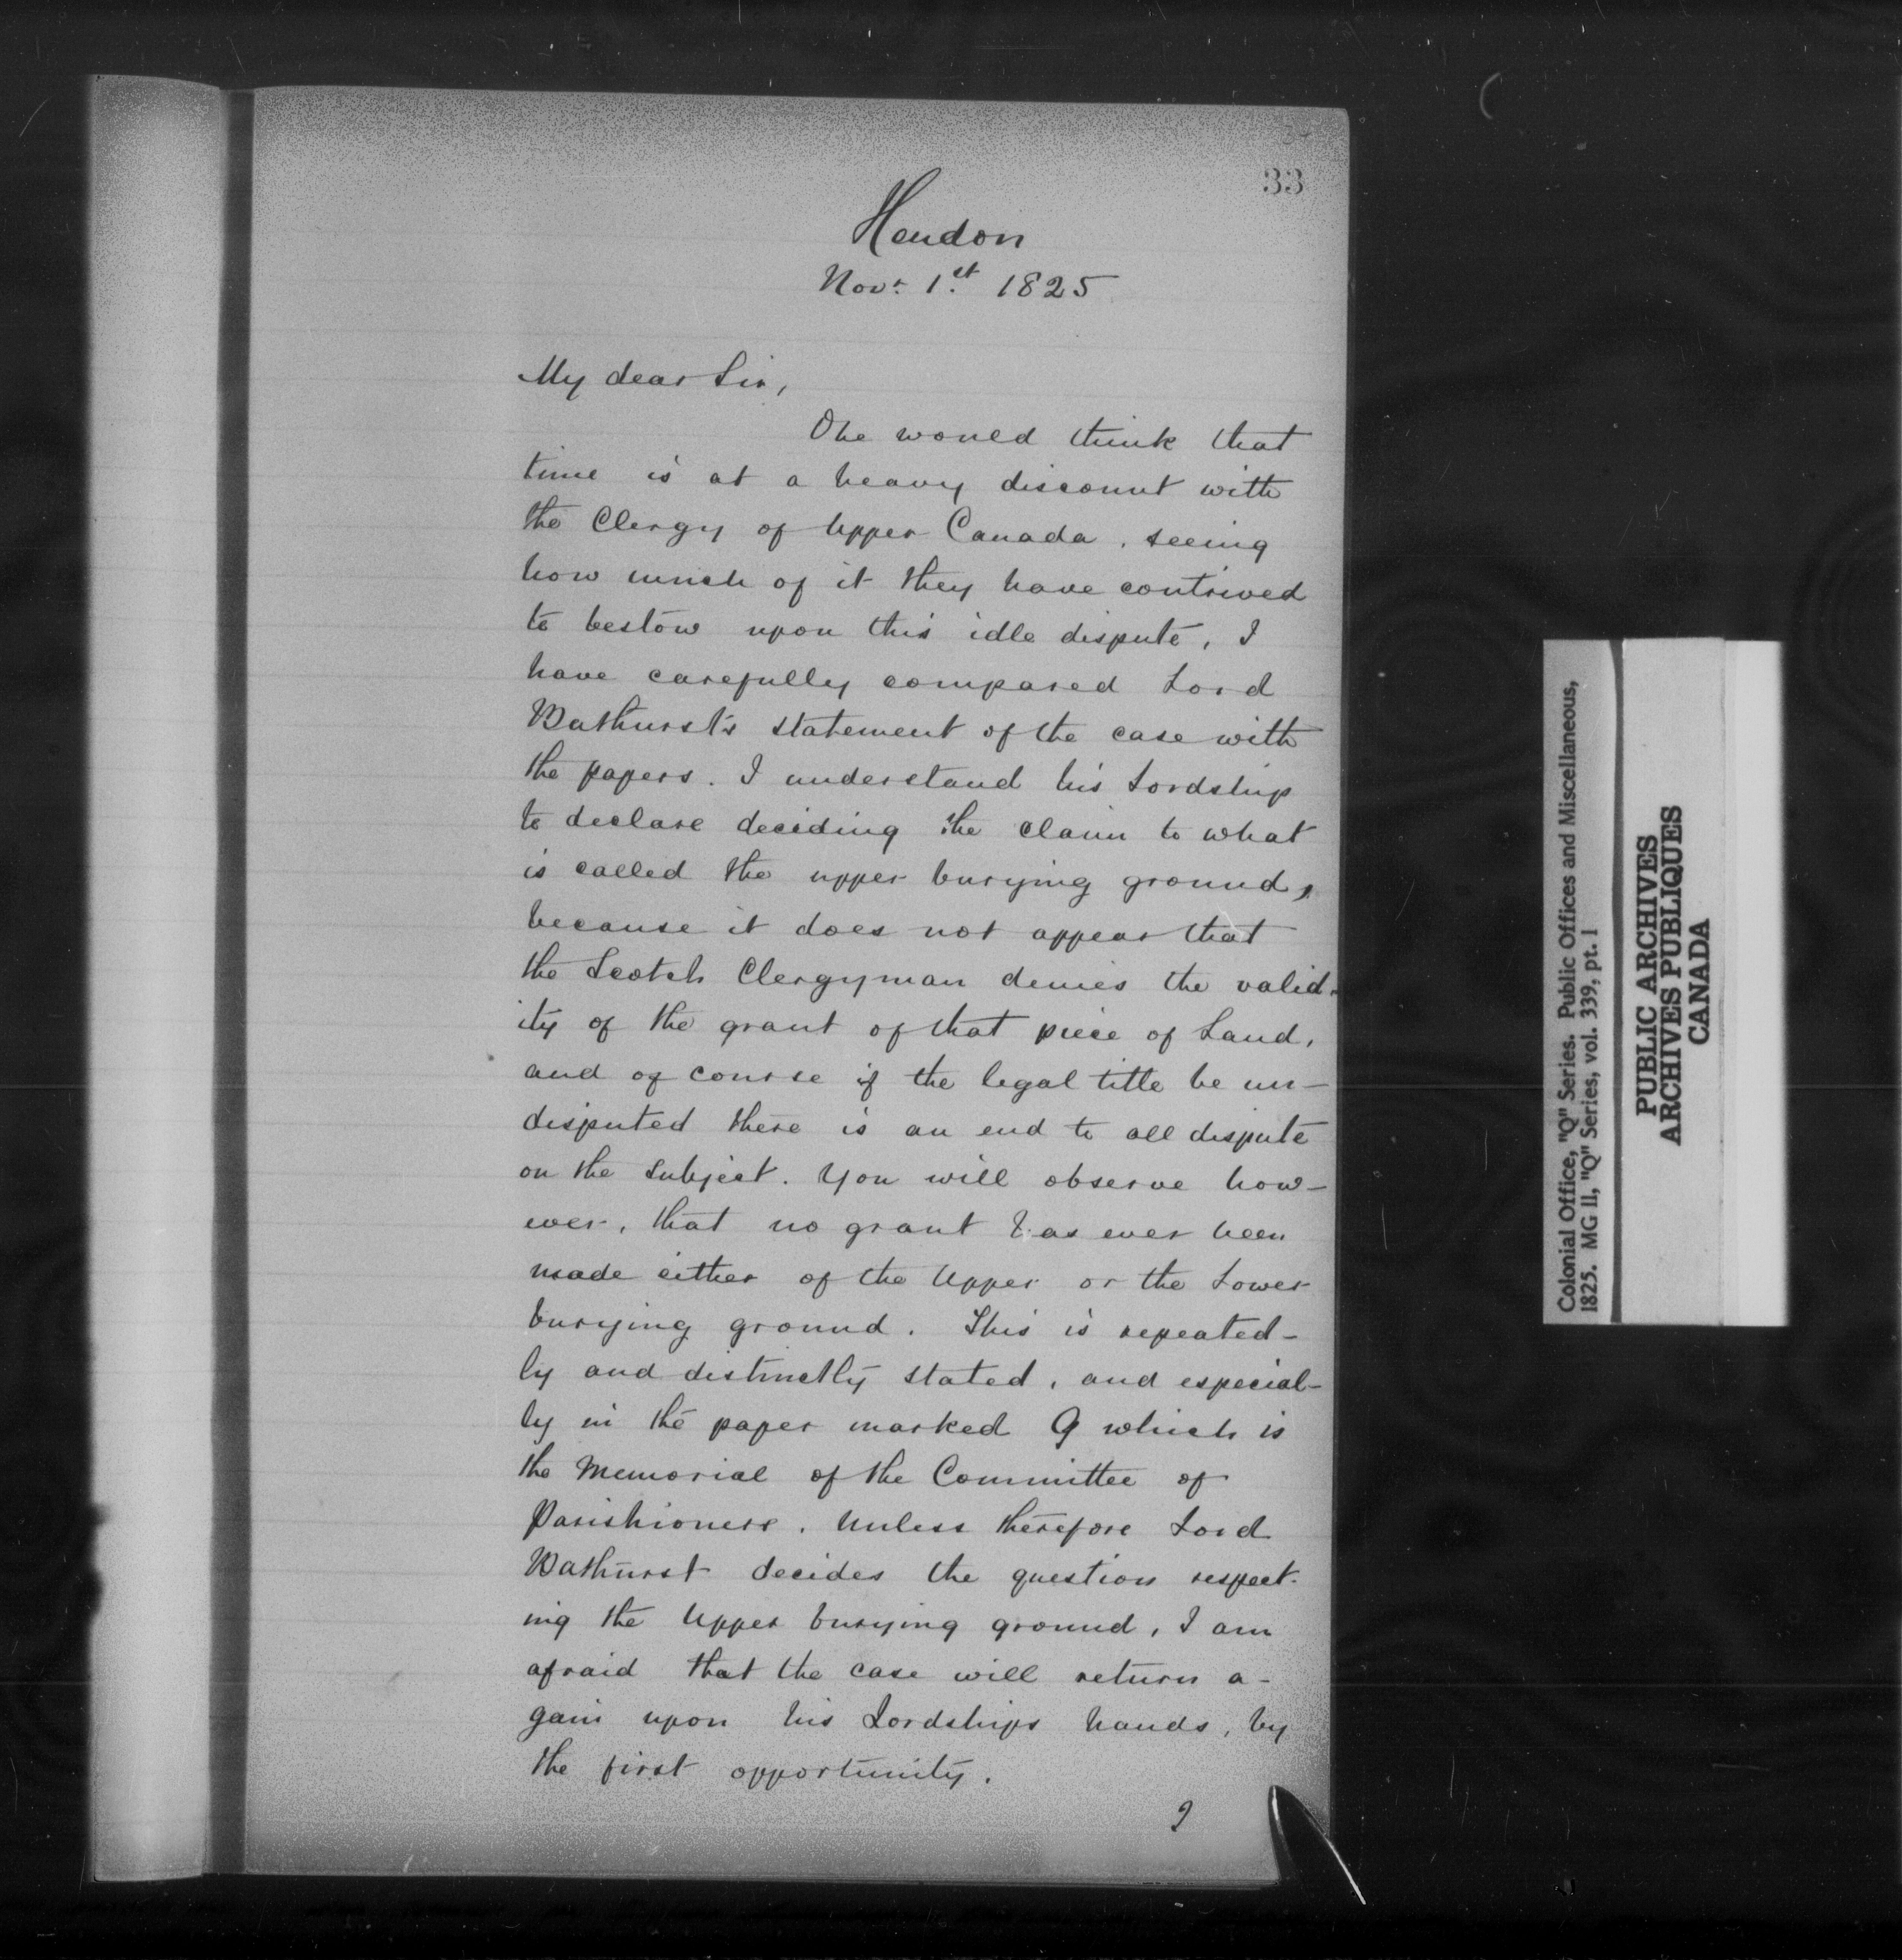 33
Hendon
Novr. 1st. 1825
My dear Sir,
One would think that
time is at a heavy discount with
the Clergy of Upper Canada, seeing
how much of it they have contrived
to bestow upon this idle dispute, I
have carefully compared Lord
Bathurst's statement of the case with
the papers. I understand his Lordship
to declare deciding the claim to what
is called the upper burying ground,
because it does not appear that
the Scotch Clergyman denies the valid-
ity of the grant of that piece of Land,
and of course if the legal title be un-
disputed there is an end to all dispute
on the subject. You will observe how-
ever, that no grant has ever been
made either of the Upper or the Lower
burying ground. This is repeated-
ly and distinctly stated, and especial-
ly in the paper marked G which is
the Memorial of the Committee of
Parishioners. Unless therefore Lord
Bathurst decides the question respect-
ing the Upper burying ground, I am
afraid that the case will return a-
gain upon his Lordships hands, by
the first opportunity.
I
Colonial Office, "Q" Series. Public Offices and Miscellaneous,
1825. MG 11, "Q" Series, vol. 339, pt. 1
PUBLIC ARCHIVES
ARCHIVES PUBLIQUES
CANADA